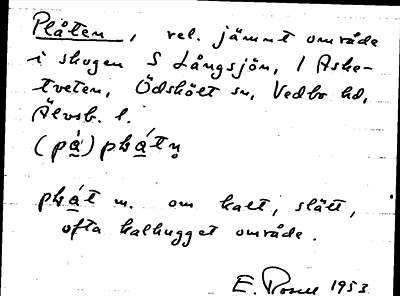 Plåten, rel. jämnt område
i skogen S Långsjön, / Aske-
tveten, Ödskölt sn, Vedbo hd,
Älvsb. l.
(på) plåtn
plåt m. om kalt, slätt,
ofta kalhugget område.
E. Rosell 1953